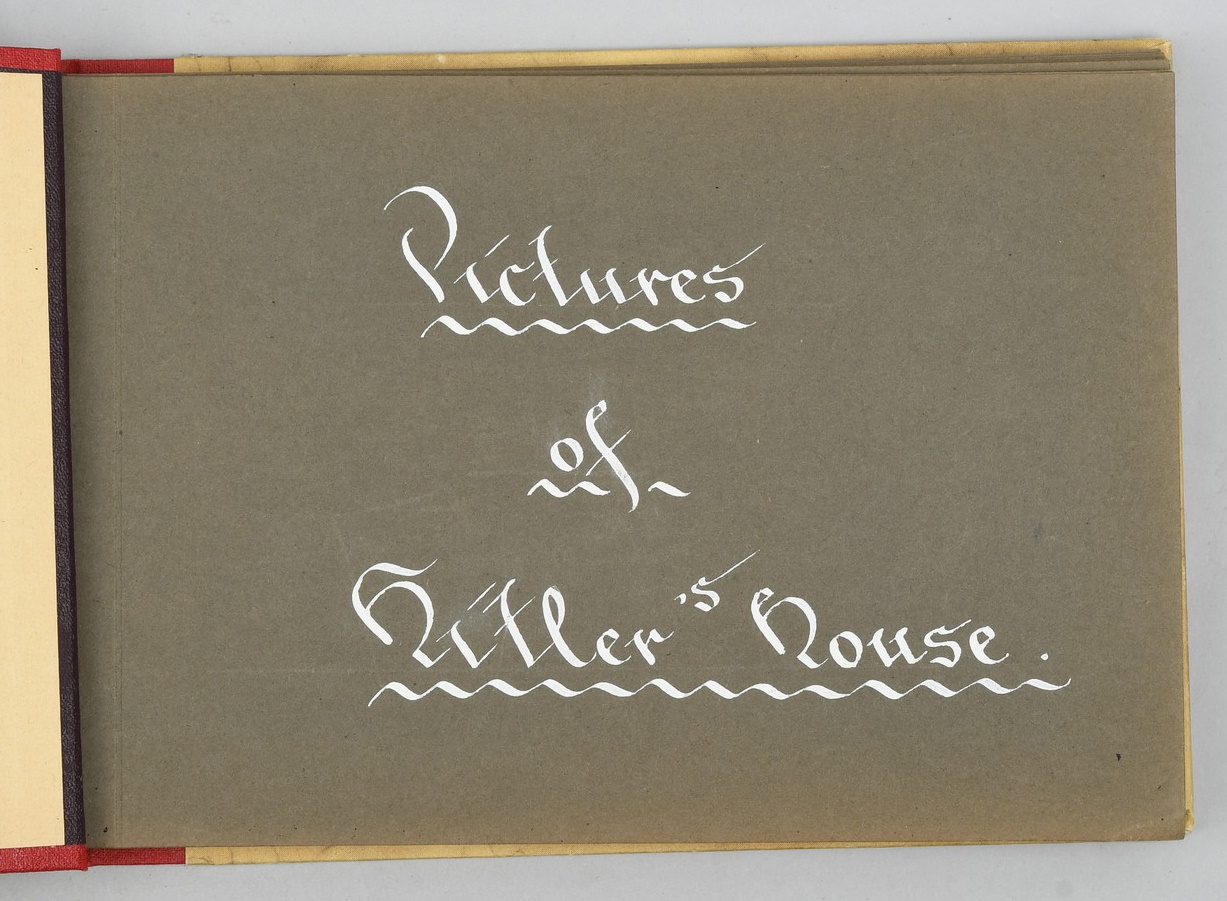 Pictures
of
Hitler's house.